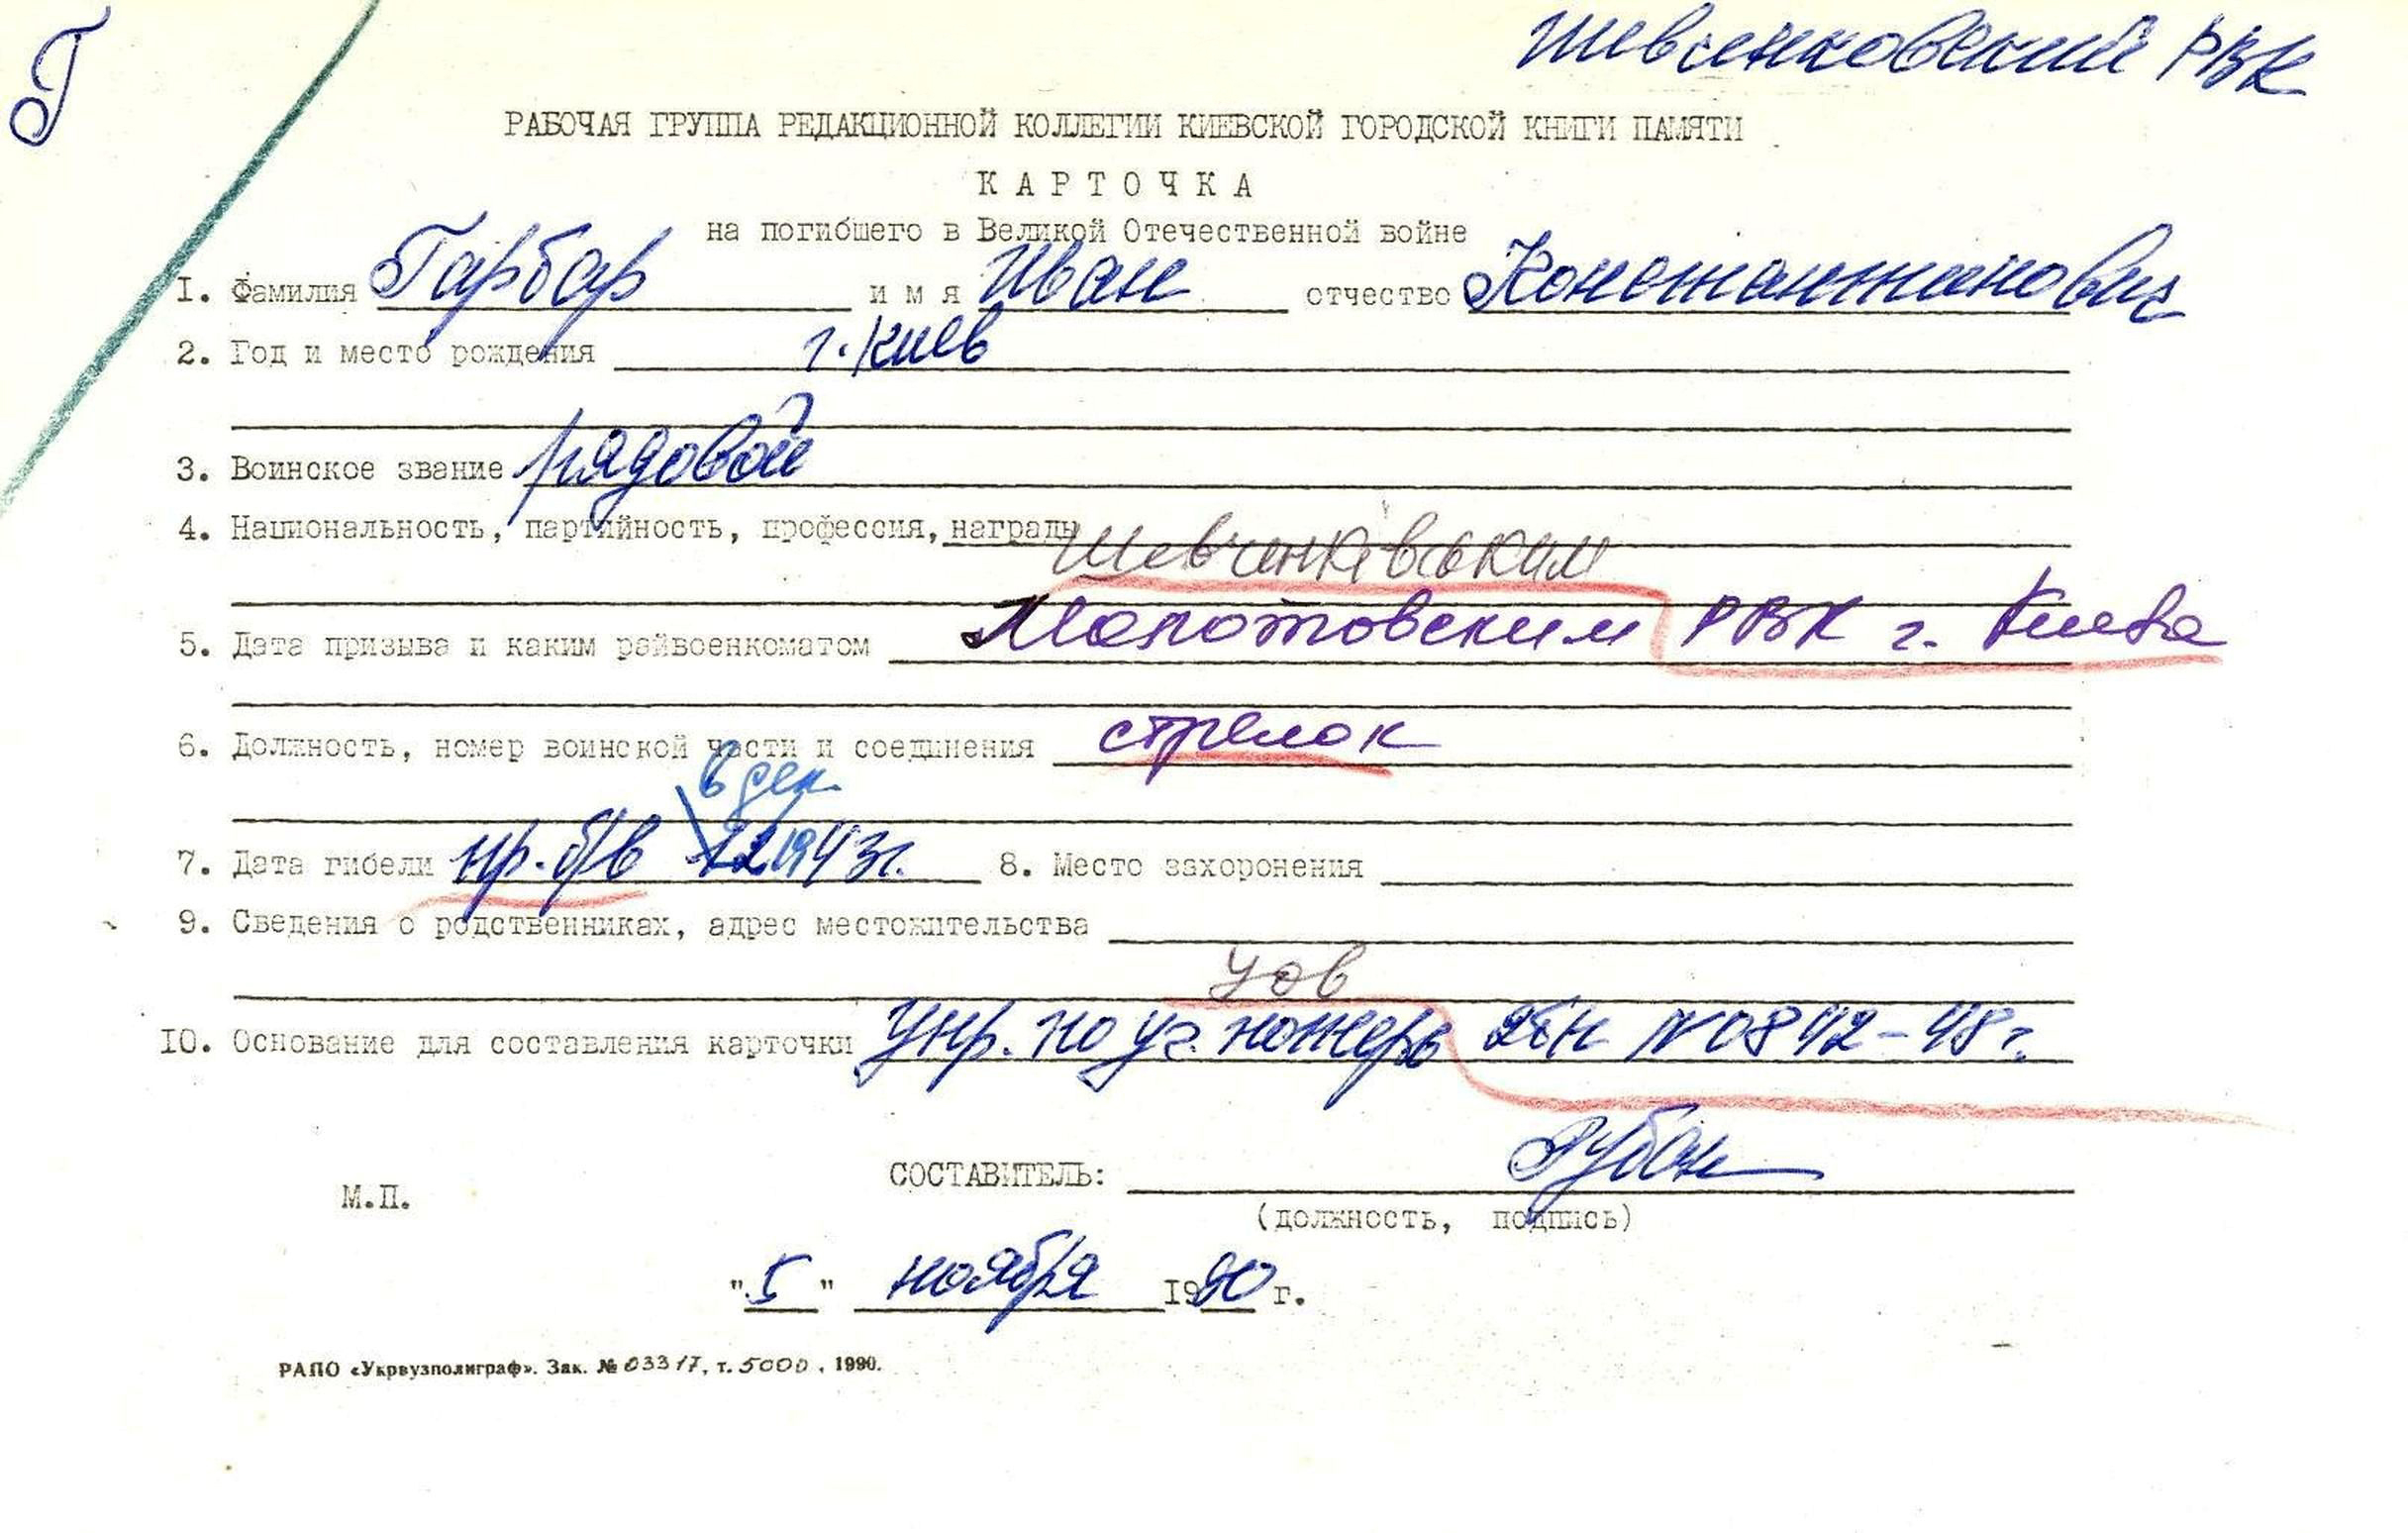 Г
Шевченковский РВК
РАБОЧАЯ ГРУППА РЕДАКЦИОННОЙ КОЛЛЕГИИ КИЕВСКОЙ ГОРОДСКОЙ КНИГИ ПАМЯТИ
КАРТОЧКА
на погибшего в Великой Отечественной войне
1. Фамилия Гарбар имя Иван отчество Константинович
2. Год и место рождения г. Киев
3. Воинское звание рядовой
4. Национальность, партийность, профессия, награды
Шевченківським
5. Дата призыва и каким райвоенкоматом Молотовским РВК г. Киева
6. Должность, номер воинской части и соединения стрелок
в дек.
7. Дата гибели пр. б/в 12 1943г. 8. Место захоронения
9. Сведения о родственниках, адрес местожительства
10. Основание для составления карточки Упр. по уч. потерь №0842-48г.
СОСТАВИТЕЛЬ: Рубан
(должность, подпись)
М.П.
"5" ноября 1990 г.
РАПО «Укрвузполиграф». Зак. № 03317, т. 5000, 1990.